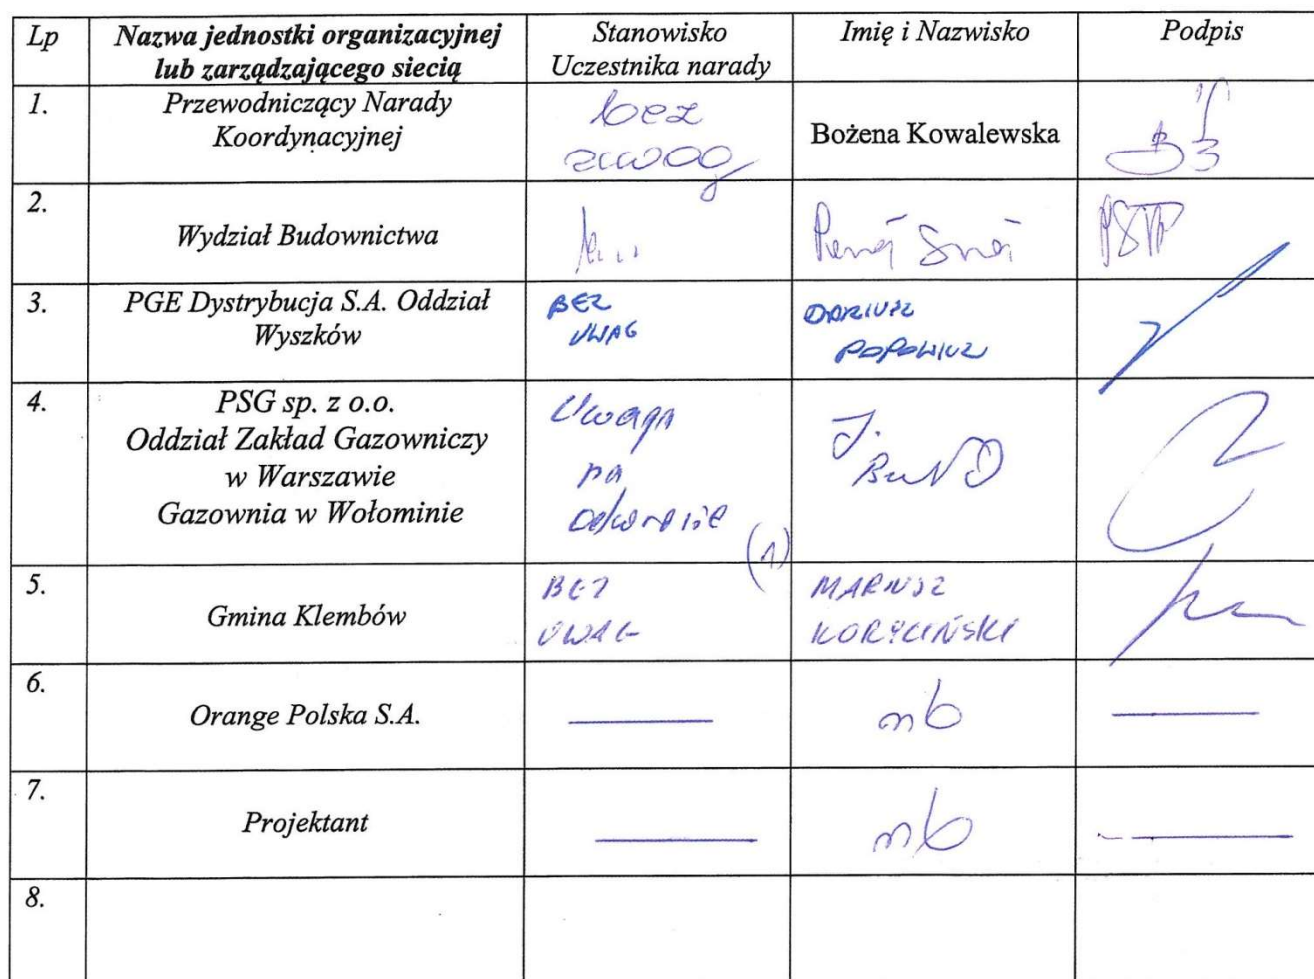 Lp
Nazwa jednostki organizacyjnej
lub zarządzającego siecią
Stanowisko
Uczestnika narady
Imię i Nazwisko
Podpis
1.
Przewodniczący Narady
Koordynacyjnej
bez
uwag
Bożena Kowalewska
2.
Wydział Budownictwa
3.
PGE Dystrybucja S.A. Oddział
Wyszków
BEZ
UWAG
DARIUSZ
POPOWICZ
4.
PSG sp. z o.o.
Oddział Zakład Gazowniczy
w Warszawie
Gazownia w Wołominie
Uwaga
na
odwrocie
(1)
J.
5.
Gmina Klembów
BEZ
UWAG
MARIUSZ
KORYCIŃSKI
6.
Orange Polska S.A.
nb
7.
Projektant
nb
8.